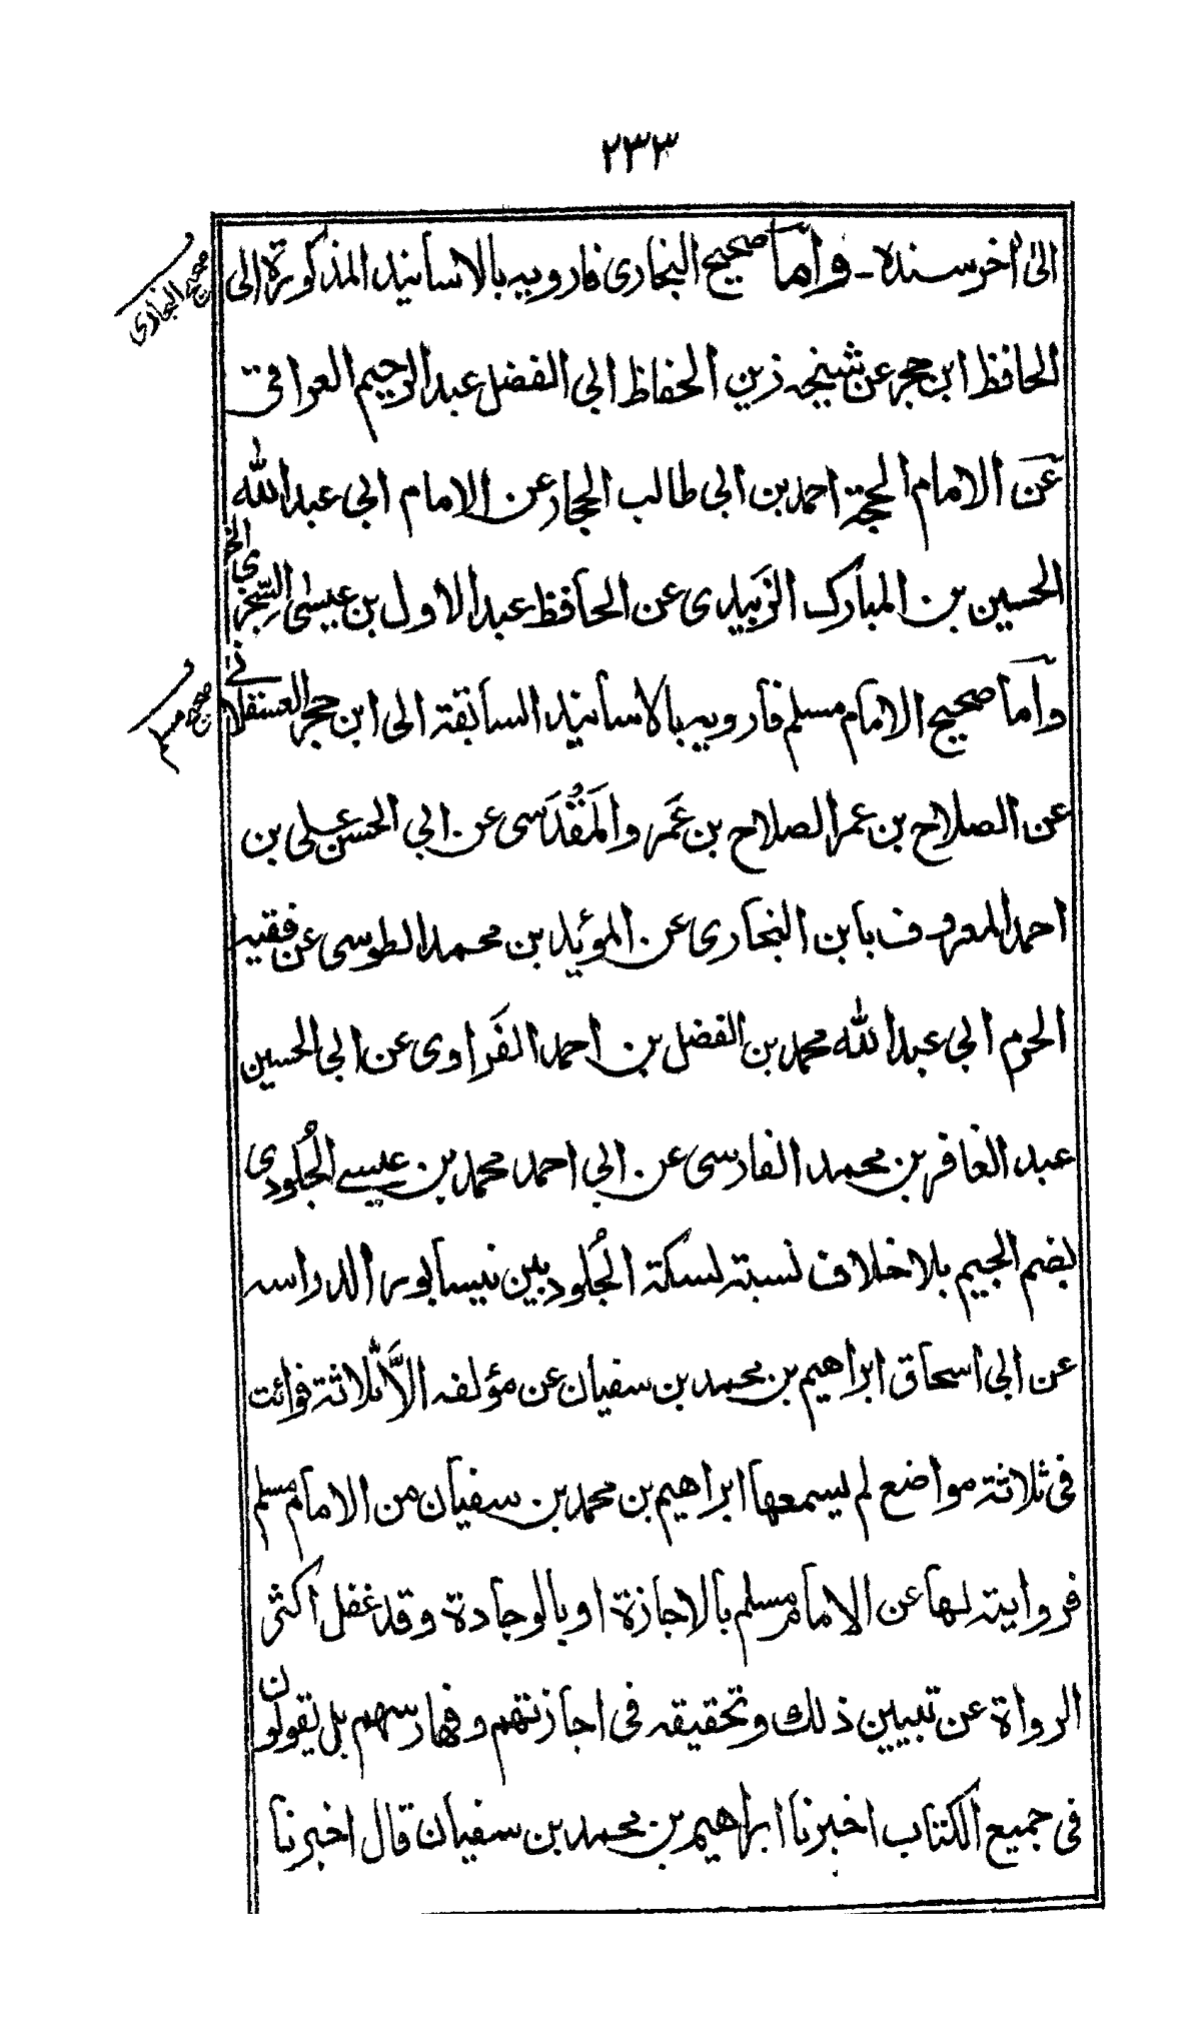 ٢٣٣
الى اخر سنده ـ واما صحيح البخارى فارويه بالاسانيد المذكورة الى
صحيح البخارى
الحافظ ابن حجر عن شيخه زين الحفاظ ابى الفضل عبد الرحيم العراقى
عن الامام الحجة احمد بن ابى طالب الحجار عن الامام ابى عبد الله
الحسين بن المبارك الزَبيدى عن الحافظ عبد الاول بن عيسى السِّجزى الخ
واما صحيح الامام مسلم فارويه بالاسانيد السابقة الى ابن حجر العسقلانى
صحيح مسلم
عن الصلاح بن عمر الصلاح بن عَمَر والمَقْدَسى عن ابي الحسن على بن
احمد المعروف بابن البخارى عن المؤيد بن محمد الطوسى عن فقيه
الحرم ابى عبد الله محمد بن الفضل بن احمد الفَراوى عن ابى الحسين
عبد الغافر بن محمد الفارسى عن ابي احمد محمد بن عيسے الجُلودى
بضم الجيم بلا خلاف نسبة لسكة الجُلود بين نيسابور الدراسه
عن ابى اسحاق ابراهيم بن محمد بن سفيان عن مؤلفه الاَّ ثلاثة فوائت
فى ثلاثة مواضع لم يسمعها ابراهيم بن محمد بن سفيان من الامام مسلم
فروايته لها عن الامام مسلم بالاجازة او بالوجادة وقد غفل اكثر
الرواة عن تبيين ذلك وتحقيقه فى اجازتهم وفهارسهم بل يقولون
فى جميع الكتاب اخبرنا ابراهيم بن محمد بن سفيان قال اخبرنا